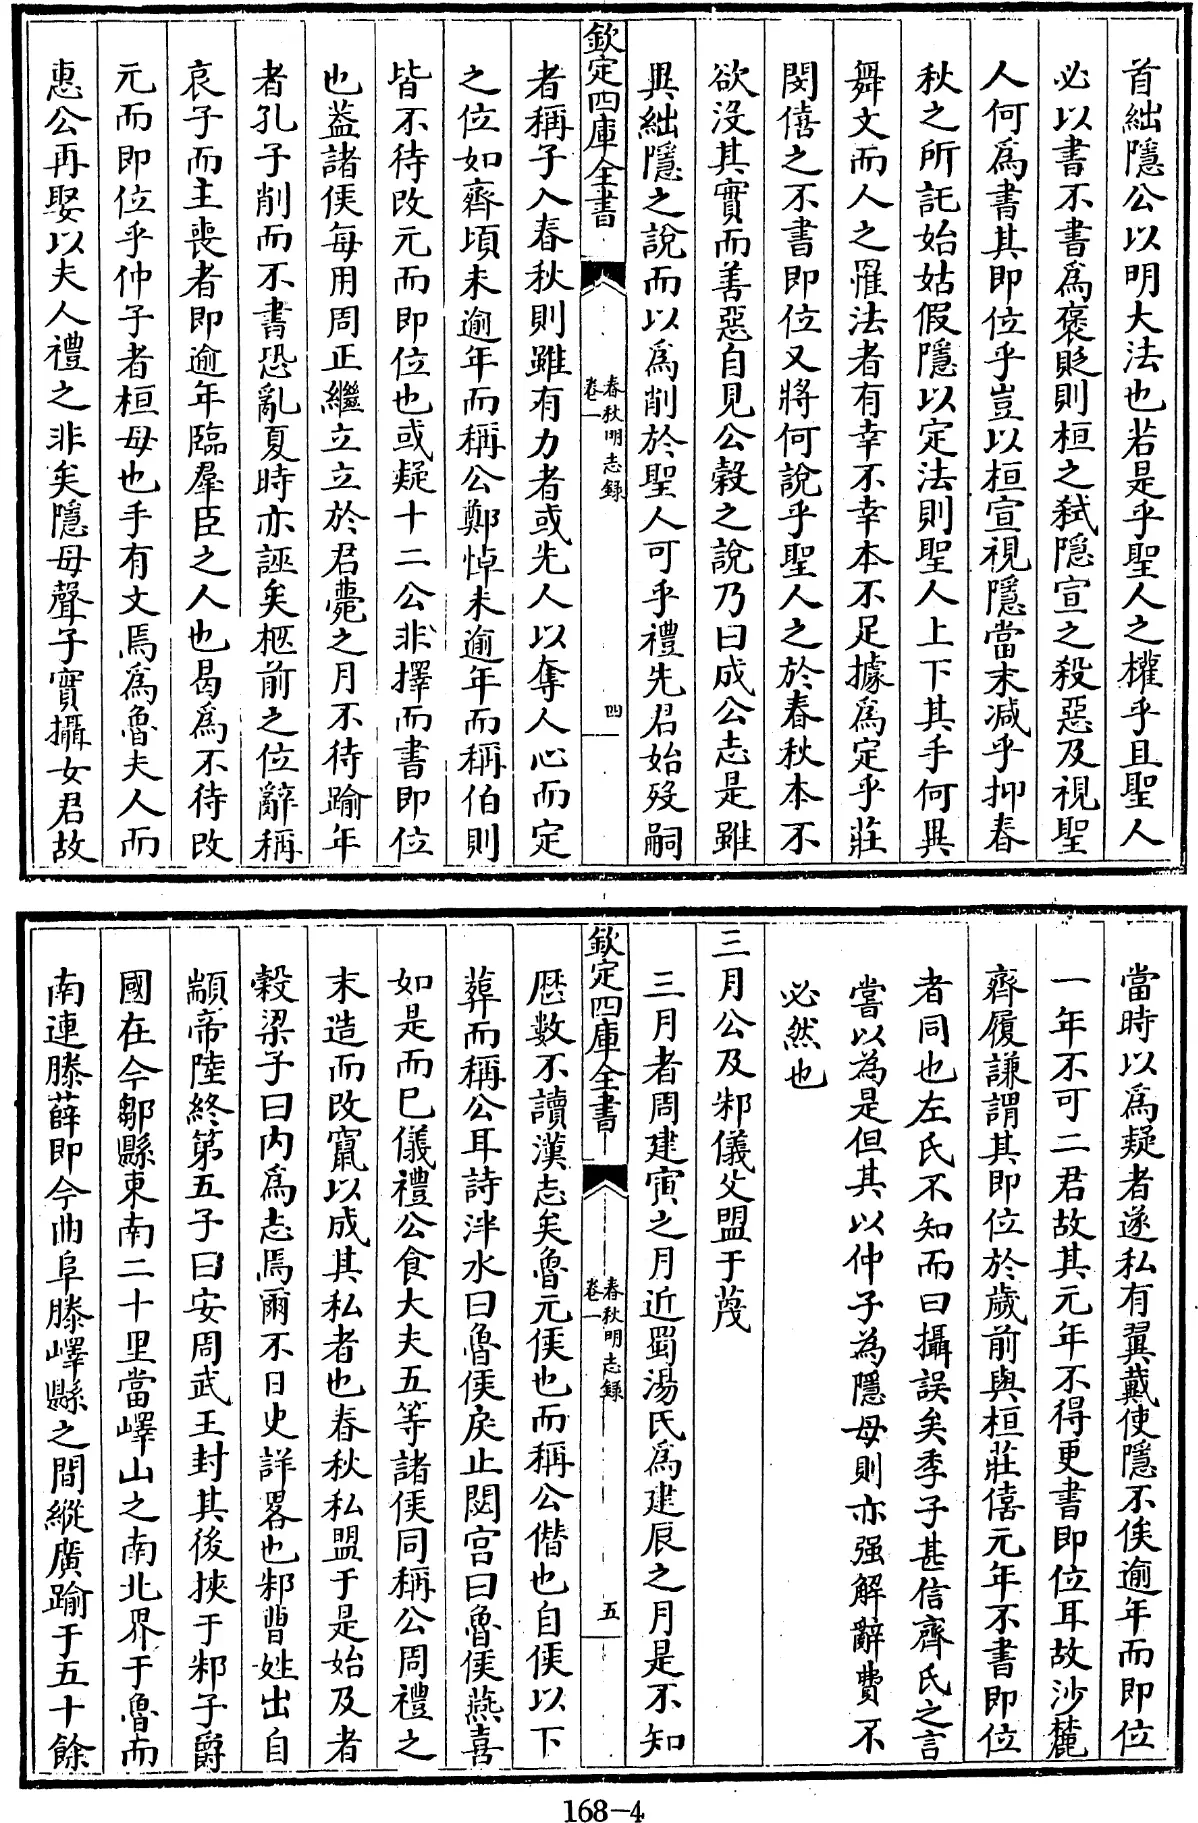 首絀隱公以明大法也若是乎聖人之權乎且聖人
必以書不書爲褒貶則桓之弑隱宣之殺惡及視聖
人何爲書其即位乎豈以桓宣視隱當末减乎抑春
秋之所託始姑假隱以定法則聖人上下其手何異
舞文而人之罹法者有幸不幸本不足據爲定乎莊
閔僖之不書即位又將何說乎聖人之於春秋本不
欲没其實而善惡自見公穀之說乃曰成公志是雖
異絀隱之說而以爲削於聖人可乎禮先君始歿嗣
欽定四庫全書
春秋明志録
卷一
四
者稱子入春秋則雖有力者或先人以奪人心而定
之位如齊頃未逾年而稱公鄭悼未逾年而稱伯則
皆不待改元而即位也或疑十二公非擇而書即位
也葢諸侯每用周正繼立立於君薨之月不待踰年
者孔子削而不書恐亂夏時亦誣矣柩前之位辭稱
哀子而主喪者即逾年臨羣臣之人也曷爲不待改
元而即位乎仲子者桓母也手有文焉爲魯夫人而
惠公再娶以夫人禮之非矣隱母聲子實攝女君故
當時以爲疑者遂私有翼戴使隱不俟逾年而即位
一年不可二君故其元年不得更書即位耳故沙麓
齊履謙謂其即位於歲前與桓莊僖元年不書即位
者同也左氏不知而曰攝誤矣季子甚信齊氏之言
嘗以為是但其以仲子為隱母則亦强解辭費不
必然也
三月公及邾儀父盟于蔑
三月者周建寅之月近蜀湯氏爲建辰之月是不知
欽定四庫全書
春秋明志録
卷一
五
歴數不讀漢志矣魯元侯也而稱公僭也自侯以下
葬而稱公耳詩泮水曰魯侯戾止閟宫曰魯侯燕喜
如是而已儀禮公食大夫五等諸侯同稱公周禮之
末造而改竄以成其私者也春秋私盟于是始及者
穀梁子曰内爲志焉爾不日史詳畧也邾曹姓出自
顓帝陸終第五子曰安周武王封其後挾于邾子爵
國在今鄒縣東南二十里當嶧山之南北界于魯而
南連滕薛即今曲阜滕嶧縣之間縱廣踰于五十餘
168-4